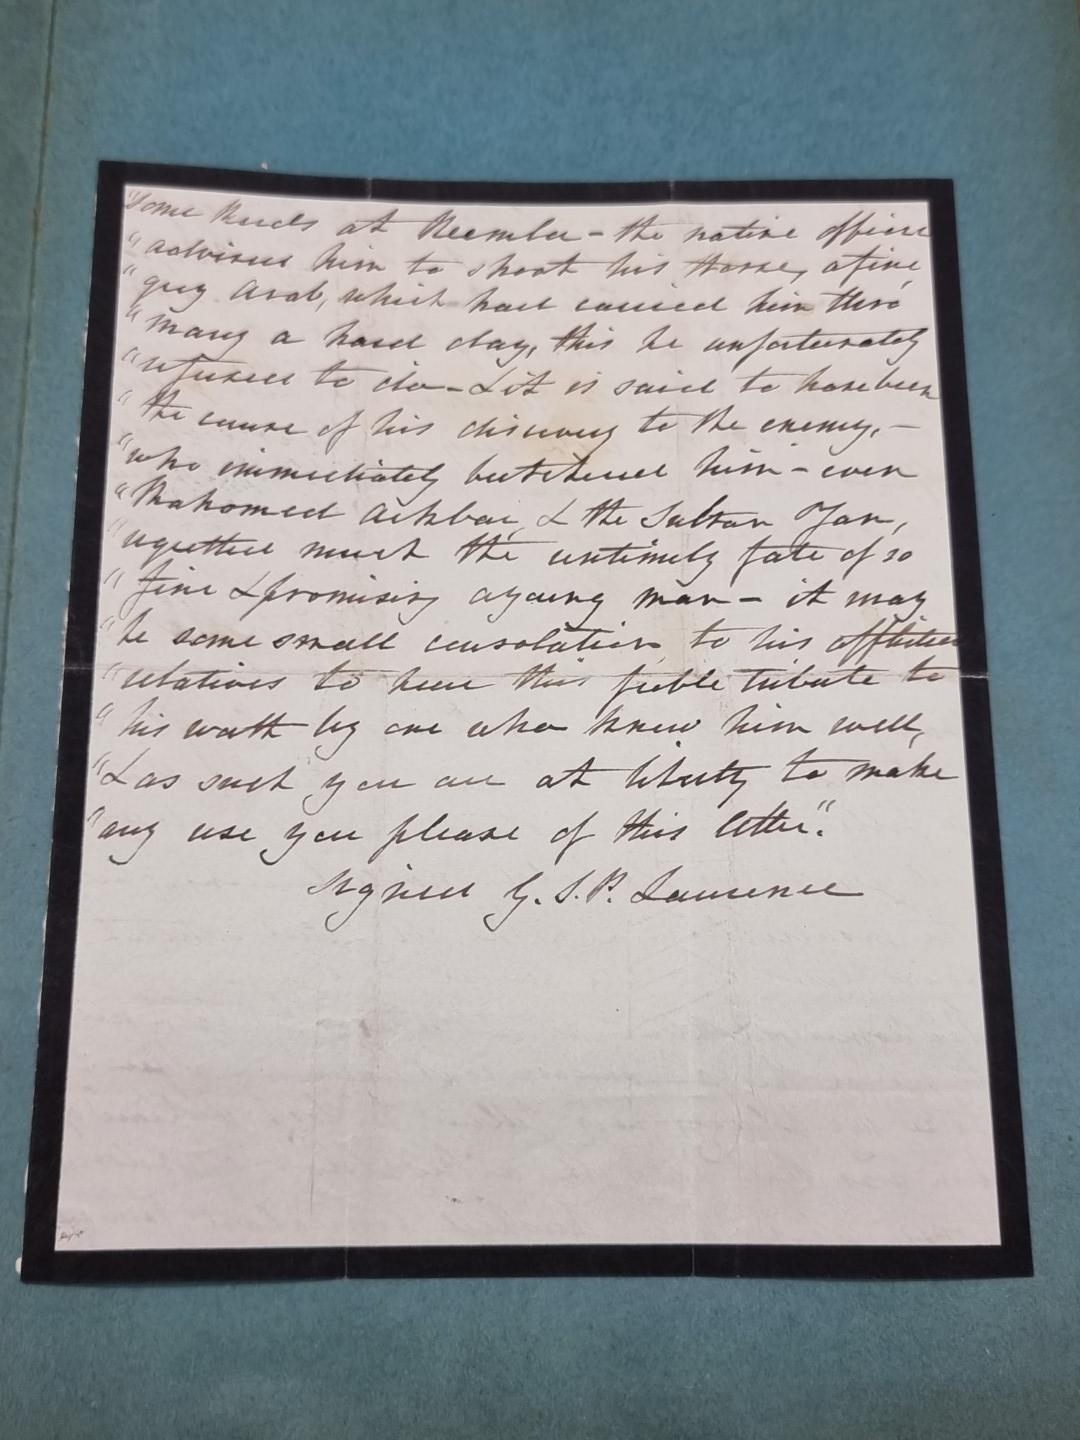 "Some Reeds at Neemla - the native officer
"advised him to shoot his Horse, a fine
"grey Arab, which had carried him thro'
"many a hard day, this he unfortunately
"refused to do - & it is said to have been
"the cause of his discovery to the enemy, -
"who immediately butchered him - even
"Mahomed Ackbar, & the Sultan Jan,
"regretted much the untimely fate of so
"fine & promising a young man - it may
"be some small consolation to his afflicted
"relatives to hear this feeble tribute to
"his worth by one who knew him well,
"& as such you are at liberty to make
"any use you please of this letter".
Signed G. S. P. Lawrence